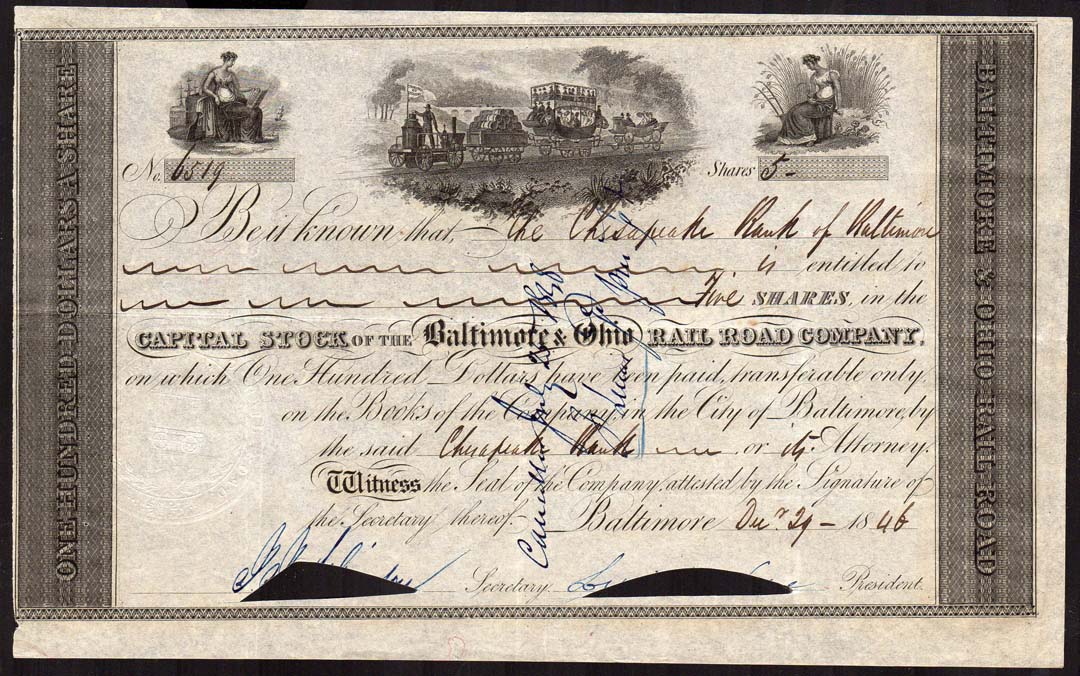 ONE HUNDRED DOLLARS A SHARE
No. 6519
Shares 5-
Be it known that, the Chesapeake Bank of Baltimore
is entitled to
Five SHARES, in the
CAPITAL STOCK OF THE Baltimore & Ohio RAIL ROAD COMPANY,
on which One Hundred Dollars, have been paid, transferable only
on the Books of the Company, in the City of Baltimore, by
the said Chesapeake Bank or its Attorney.
Witness the Seal of the Company, attested by the Signature of
the Secretary thereof. Baltimore Decr 29 - 1846
Secretary
President.
BALTIMORE & OHIO RAIL ROAD
Cancelled July 25 1848